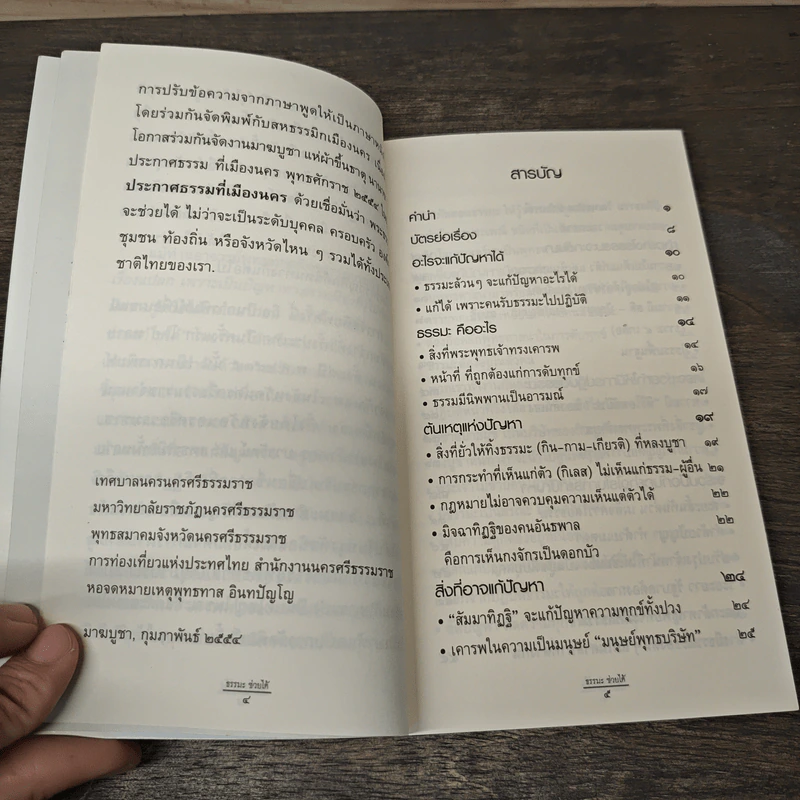 การปรับข้อความจากภาษาพูดให้เป็นภาษา
โดยร่วมกันจัดพิมพ์กับสหธรรมิกเมืองนคร
โอกาสร่วมกันจัดงานมาฆบูชา แห่ผ้าขึ้นธาตุ
ประกาศธรรม ที่เมืองนคร พุทธศักราช ๒๕๕๔
ประกาศธรรมที่เมืองนคร ด้วยเชื่อมั่นว่า
จะช่วยได้ ไม่ว่าจะเป็นระดับบุคคล ครอบครัว
ชุมชน ท้องถิ่น หรือจังหวัดไหน ๆ รวมได้ทั้ง
ชาติไทยของเรา.
เทศบาลนครนครศรีธรรมราช
มหาวิทยาลัยราชภัฏนครศรีธรรมราช
พุทธสมาคมจังหวัดนครศรีธรรมราช
การท่องเที่ยวแห่งประเทศไทย สำนักงานนครศรีธรรมราช
หอจดหมายเหตุพุทธทาส อินทปัญโญ
มาฆบูชา, กุมภาพันธ์ ๒๕๕๔
ธรรมะ ช่วยได้
๔
สารบัญ
คำนำ ๑
บัตรย่อเรื่อง ๘
อะไรจะแก้ปัญหาได้ ๑๐
• ธรรมะล้วนๆ จะแก้ปัญหาอะไรได้ ๑๐
• แก้ได้ เพราะคนรับธรรมะไปปฏิบัติ ๑๑
ธรรมะ คืออะไร ๑๔
• สิ่งที่พระพุทธเจ้าทรงเคารพ ๑๔
• หน้าที่ ที่ถูกต้องแก่การดับทุกข์ ๑๖
• ธรรมมีนิพพานเป็นอารมณ์ ๑๗
ต้นเหตุแห่งปัญหา ๑๙
• สิ่งที่ยั่วให้ทิ้งธรรมะ (กิน-กาม-เกียรติ) ที่หลงบูชา ๑๙
• การกระทำที่เห็นแก่ตัว (กิเลส) ไม่เห็นแก่ธรรม-ผู้อื่น ๒๑
• กฎหมายไม่อาจควบคุมความเห็นแต่ตัวได้ ๒๒
• มิจฉาทิฏฐิของคนอันธพาล ๒๒
คือการเห็นกงจักรเป็นดอกบัว
สิ่งที่อาจแก้ปัญหา ๒๔
• “สัมมาทิฏฐิ” จะแก้ปัญหาความทุกข์ทั้งปวง ๒๔
• เคารพในความเป็นมนุษย์ “มนุษย์พุทธบริษัท” ๒๕
ธรรมะ ช่วยได้
๕